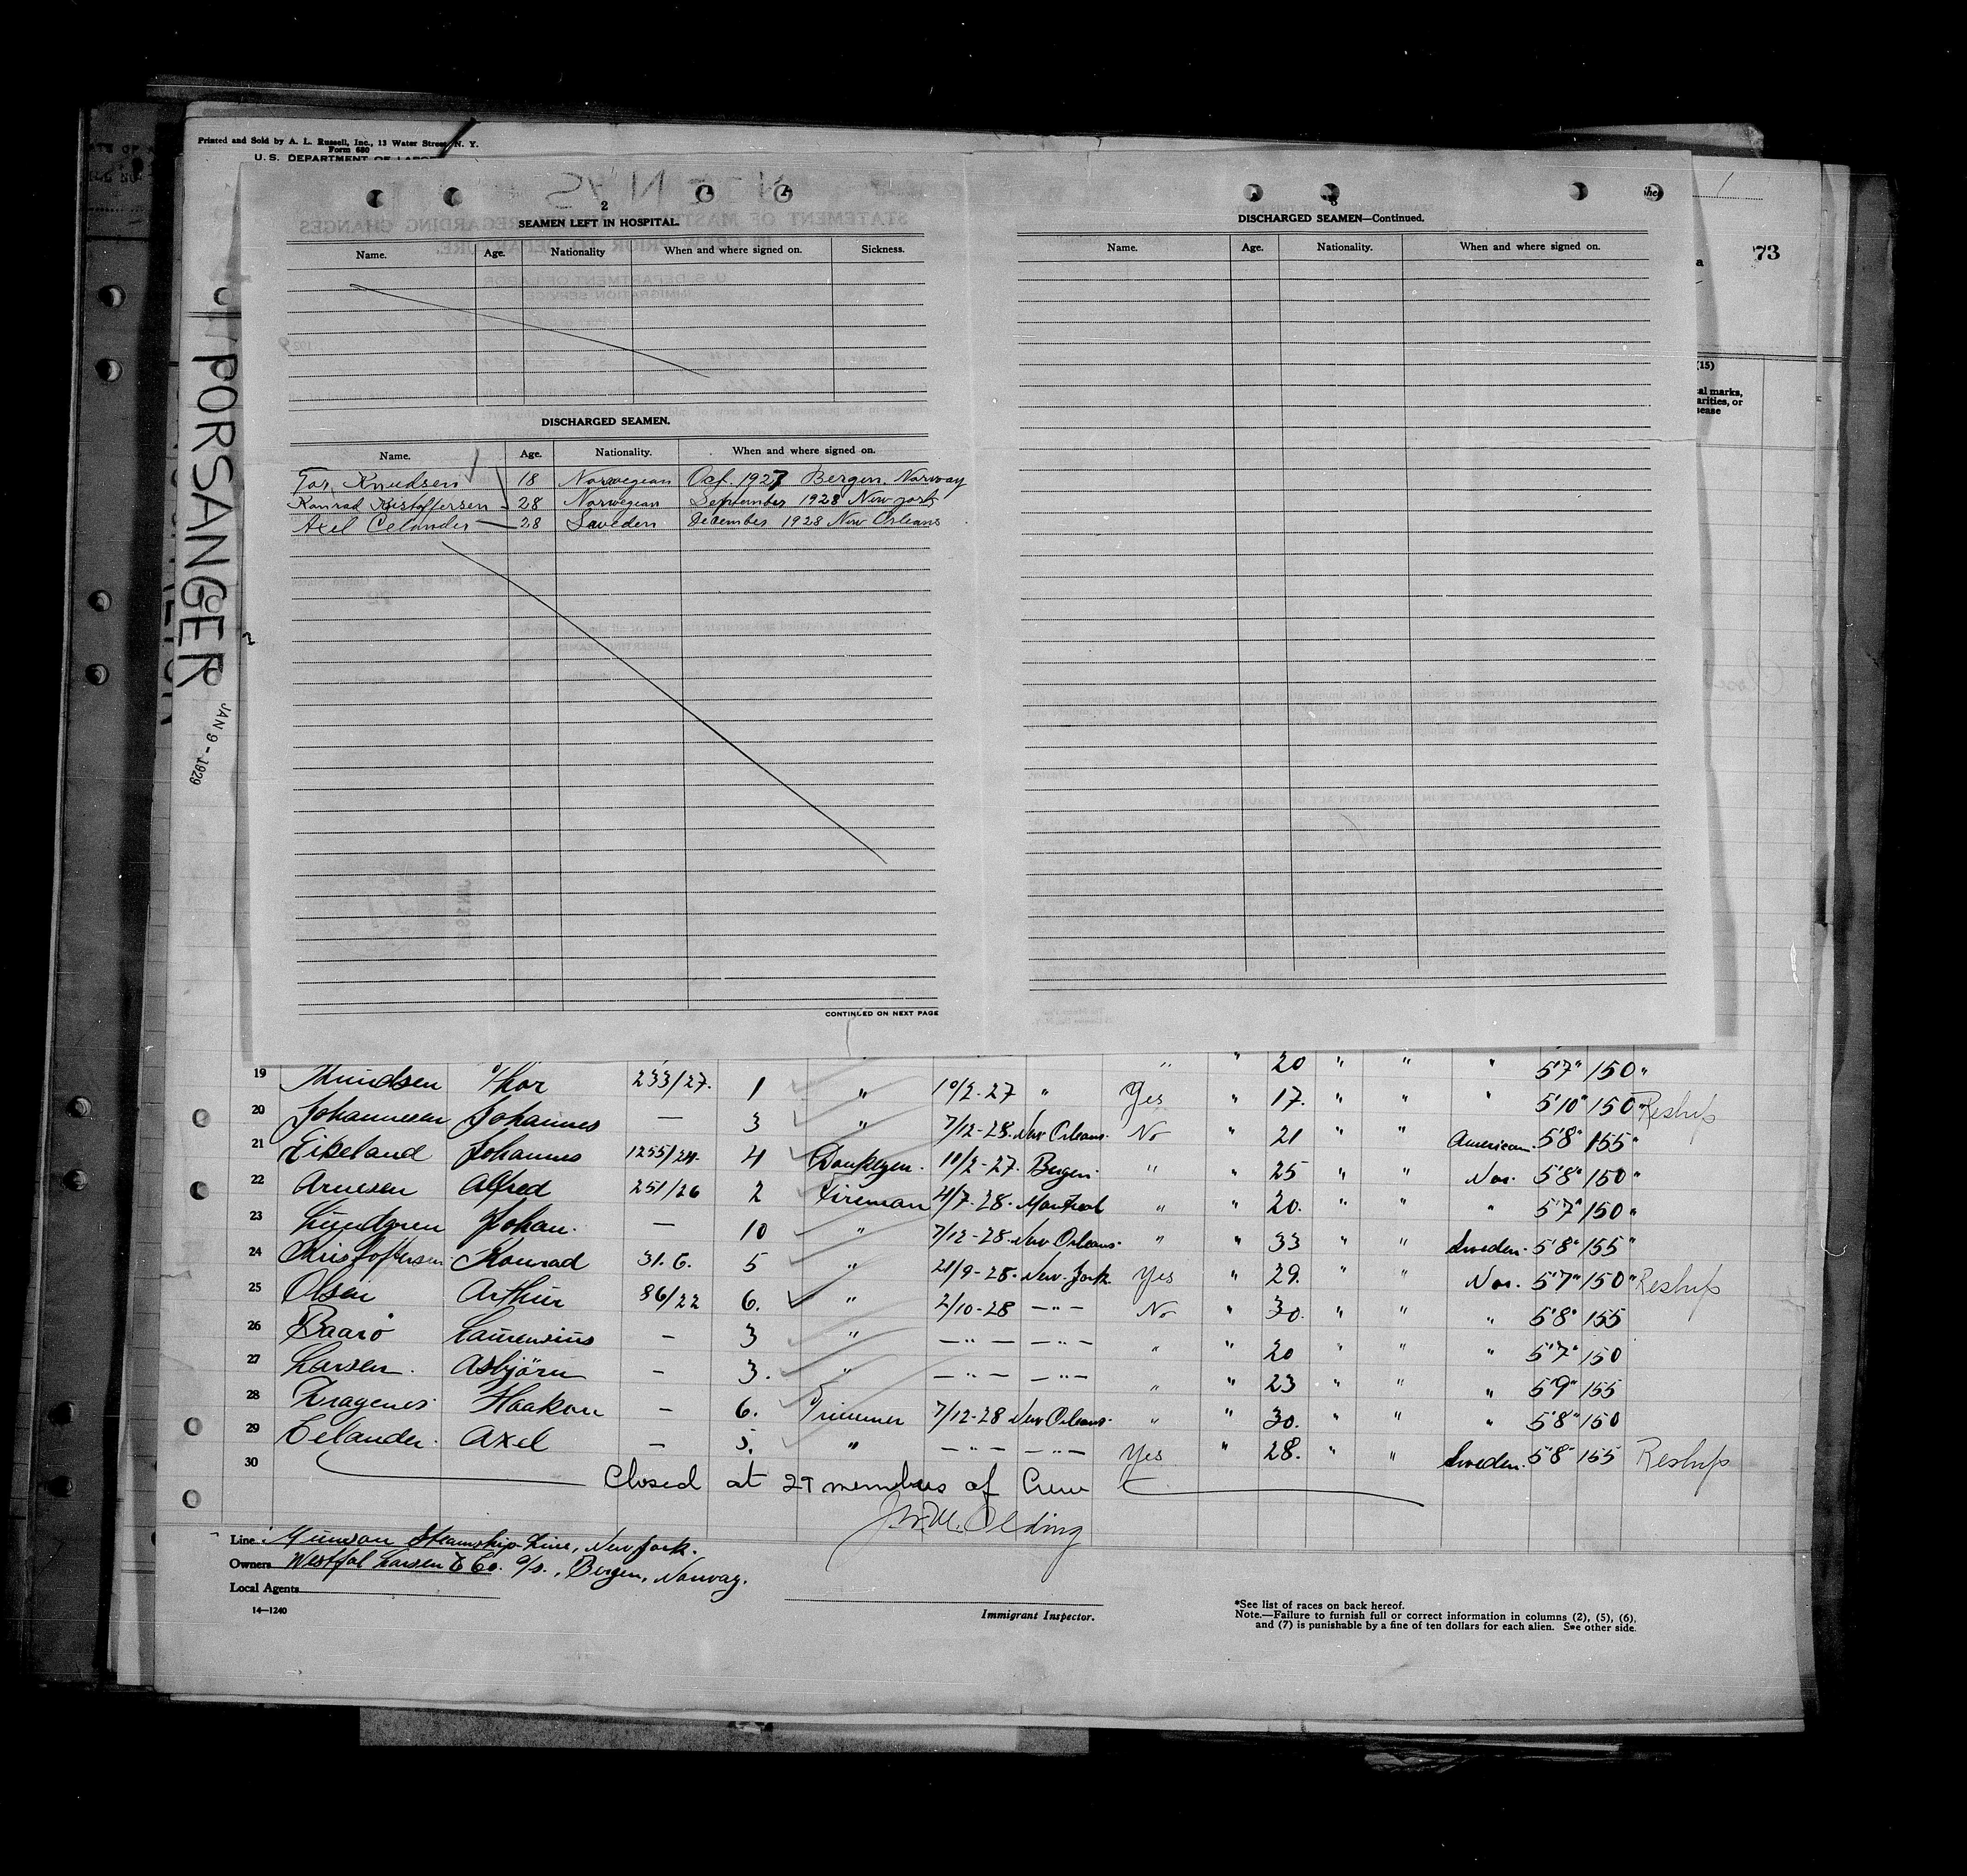 Printed and Sold by A. L. Russell, Inc., 13 Water Street, N. Y.
Form 680
U. S. DEPARTMENT OF LABOR
PORSANGER
JAN 9 - 1929
73
2
SEAMEN LEFT IN HOSPITAL.
Name. Age. Nationality When and where signed on. Sickness.
DISCHARGED SEAMEN.
Name. Age. Nationality. When and where signed on.
Tor Knudsen 18 Norwegian Oct. 1927 Bergen Norway
Konrad Kristoffersen 28 Norwegian September 1928 New york
Axel Celander 28 Sweden December 1928 New Orleans
CONTINUED ON NEXT PAGE
3
DISCHARGED SEAMEN—Continued.
Name. Age. Nationality. When and where signed on.
(15)
" " 20 " " " 5'7" 150 "
19 Knudsen Thor 233/27. 1 " 10/2-27 " Yes " 17. " " " 5'10" 150 " Reship
20 Johannesen Johannes — 3 " 7/12-28. New Orleans. No " 21 " " American 5'8" 155 "
21 Eikeland Johannes 1255/24. 4 Donkeym. 10/2-27. Bergen. " " 25 " " Nor. 5'8" 150 "
22 Arnesen Alfred 251/26 2 Fireman 4/7-28. Montreal " " 20. " " " 5'7" 150 "
23 Lundgren Johan. — 10 " 7/12-28. New Orleans. " " 33 " " Sweden. 5'8" 155 "
24 Kristoffersen. Konrad 31.6. 5 " 21/9-28. New-York Yes " 29. " " Nor. 5'7" 150 " Reship
25 Olsen Arthur 86/22 6. " 2/10-28 —"— No " 30. " " " 5'8" 155
26 Baarö Laurensius - 3 " —"— —"— " " 20 " " " 5'7" 150
27 Larsen. Asbjörn - 3. " —"— —"— " " 23 " " " 5'9" 155
28 Haakon - 6. Trimmer 7/12-28 New Orleans. " " 30. " " " 5'8" 150
29 Celander. Axel — 5. " —"— —"— Yes " 28. " " Sweden. 5'8" 155 Reship
30 Closed at 29 members of Crew
Line Munson Steamship Line, New York.
Owners Westfal Larsen & Co. A/s., Bergen, Norway.
Local Agents
14—1240
Immigrant Inspector.
*See list of races on back hereof.
Note.—Failure to furnish full or correct information in columns (2), (5), (6),
and (7) is punishable by a fine of ten dollars for each alien. See other side.